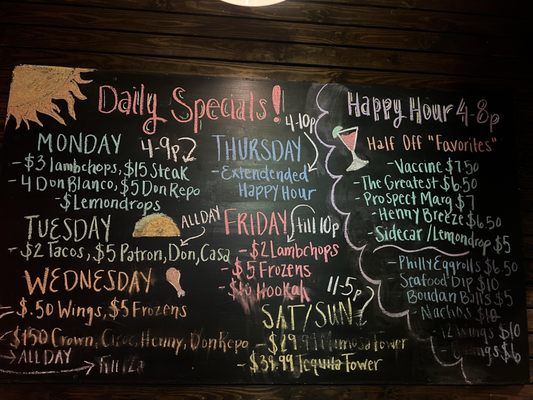 Daily Specials!
MONDAY 4-9p
-$3 lambchops, $15 Steak
-4 Don Blanco, $5 Don Repo
-$Lemondrops
TUESDAY ALL DAY
-$2 Tacos, $5 Patron, Don, Casa
WEDNESDAY
$.50 Wings, $5 Frozens
$150 Crown, Ciroc, Henny, Don Repo
ALL DAY
4-10p
THURSDAY
-Extendended
Happy Hour
FRIDAY till 10p
-$2 Lambchops
-$5 Frozens
-$10 Hookah
11-5p
SAT/SUN
-$29.99 Mimosa Tower
-$39.99 Tequila Tower
Happy Hour 4-8p
Half Off "Favorites"
-Vaccine $7.50
-The Greatest $6.50
-Prospect Marg $7
-Henny Breeze $6.50
-Sidecar/Lemondrop $5
-Philly Eggrolls $6.50
Seafood Dip $10
Boudan Balls $5
-Nachos $10
12 Wings $10
Wings $6